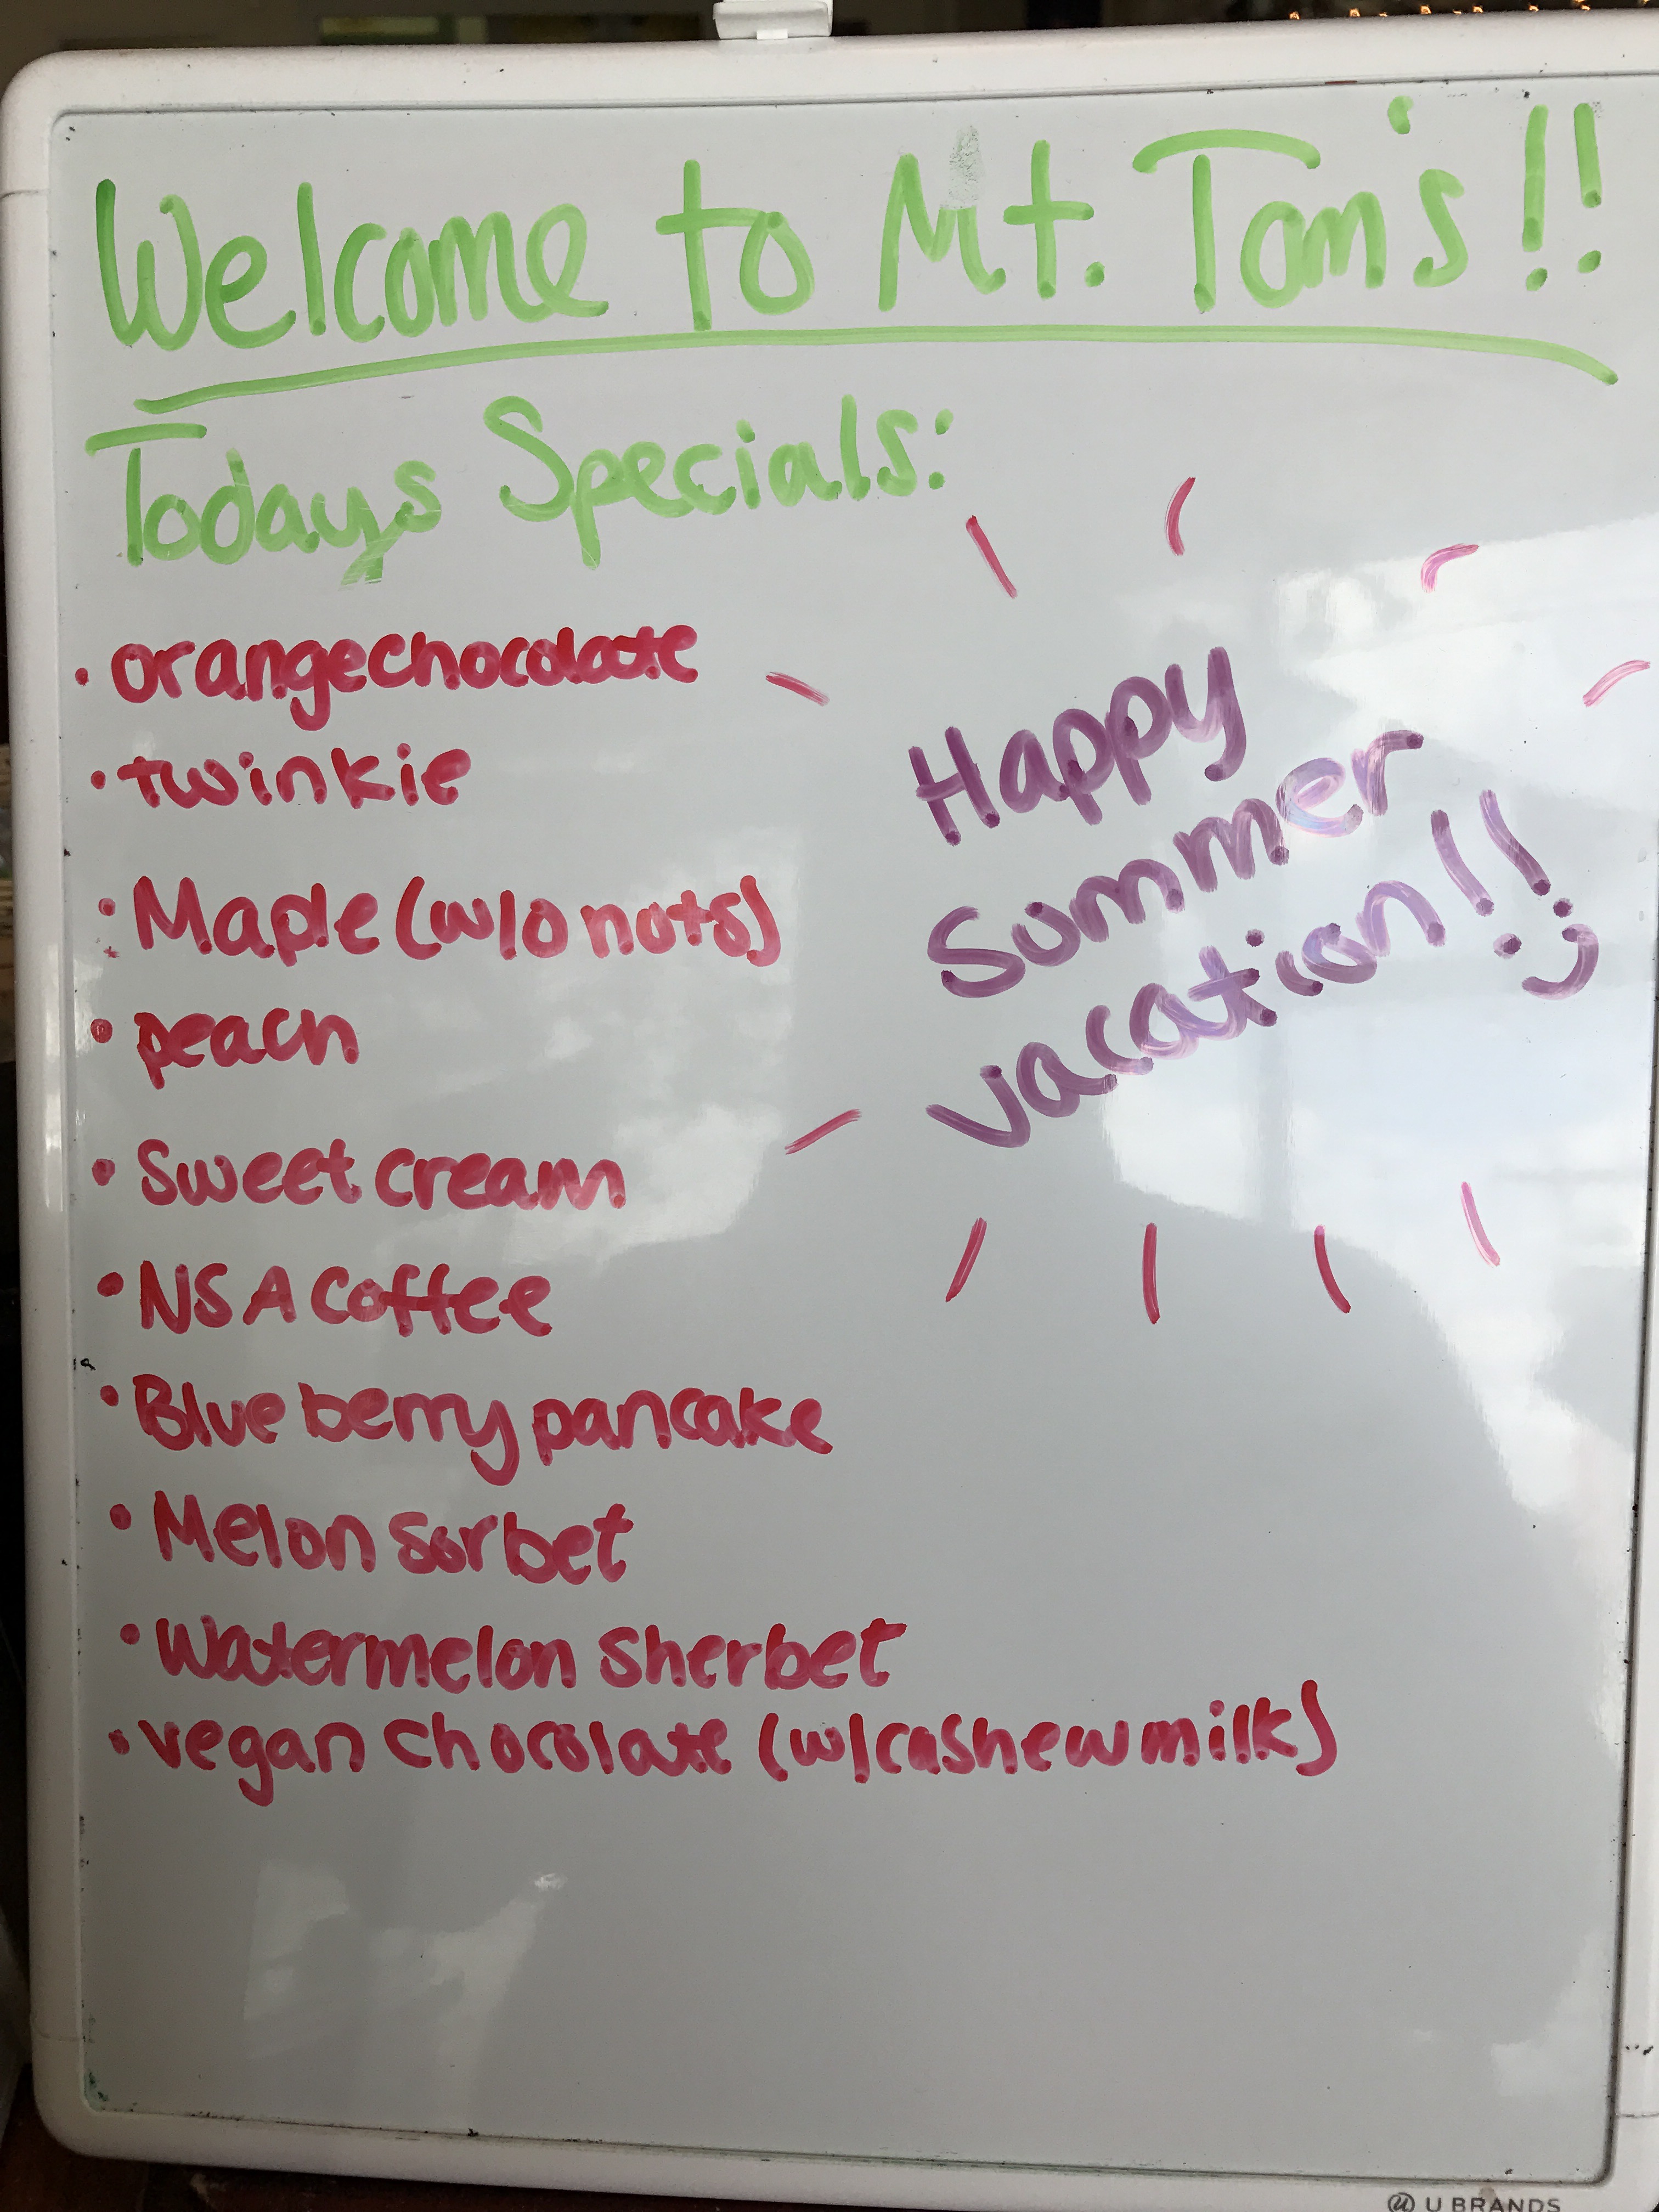 Welcome to Mt. Tom's!!
Todays Specials:
• orangechocolate
• twinkie
• Maple (w/o nuts)
• peach
• Sweet cream
• NSA Coffee
• Blueberry pancake
• Melon sorbet
• Watermelon Sherbet
• vegan chocolate (w/cashewmilk)
Happy
Summer
vacation!! :)
U BRANDS